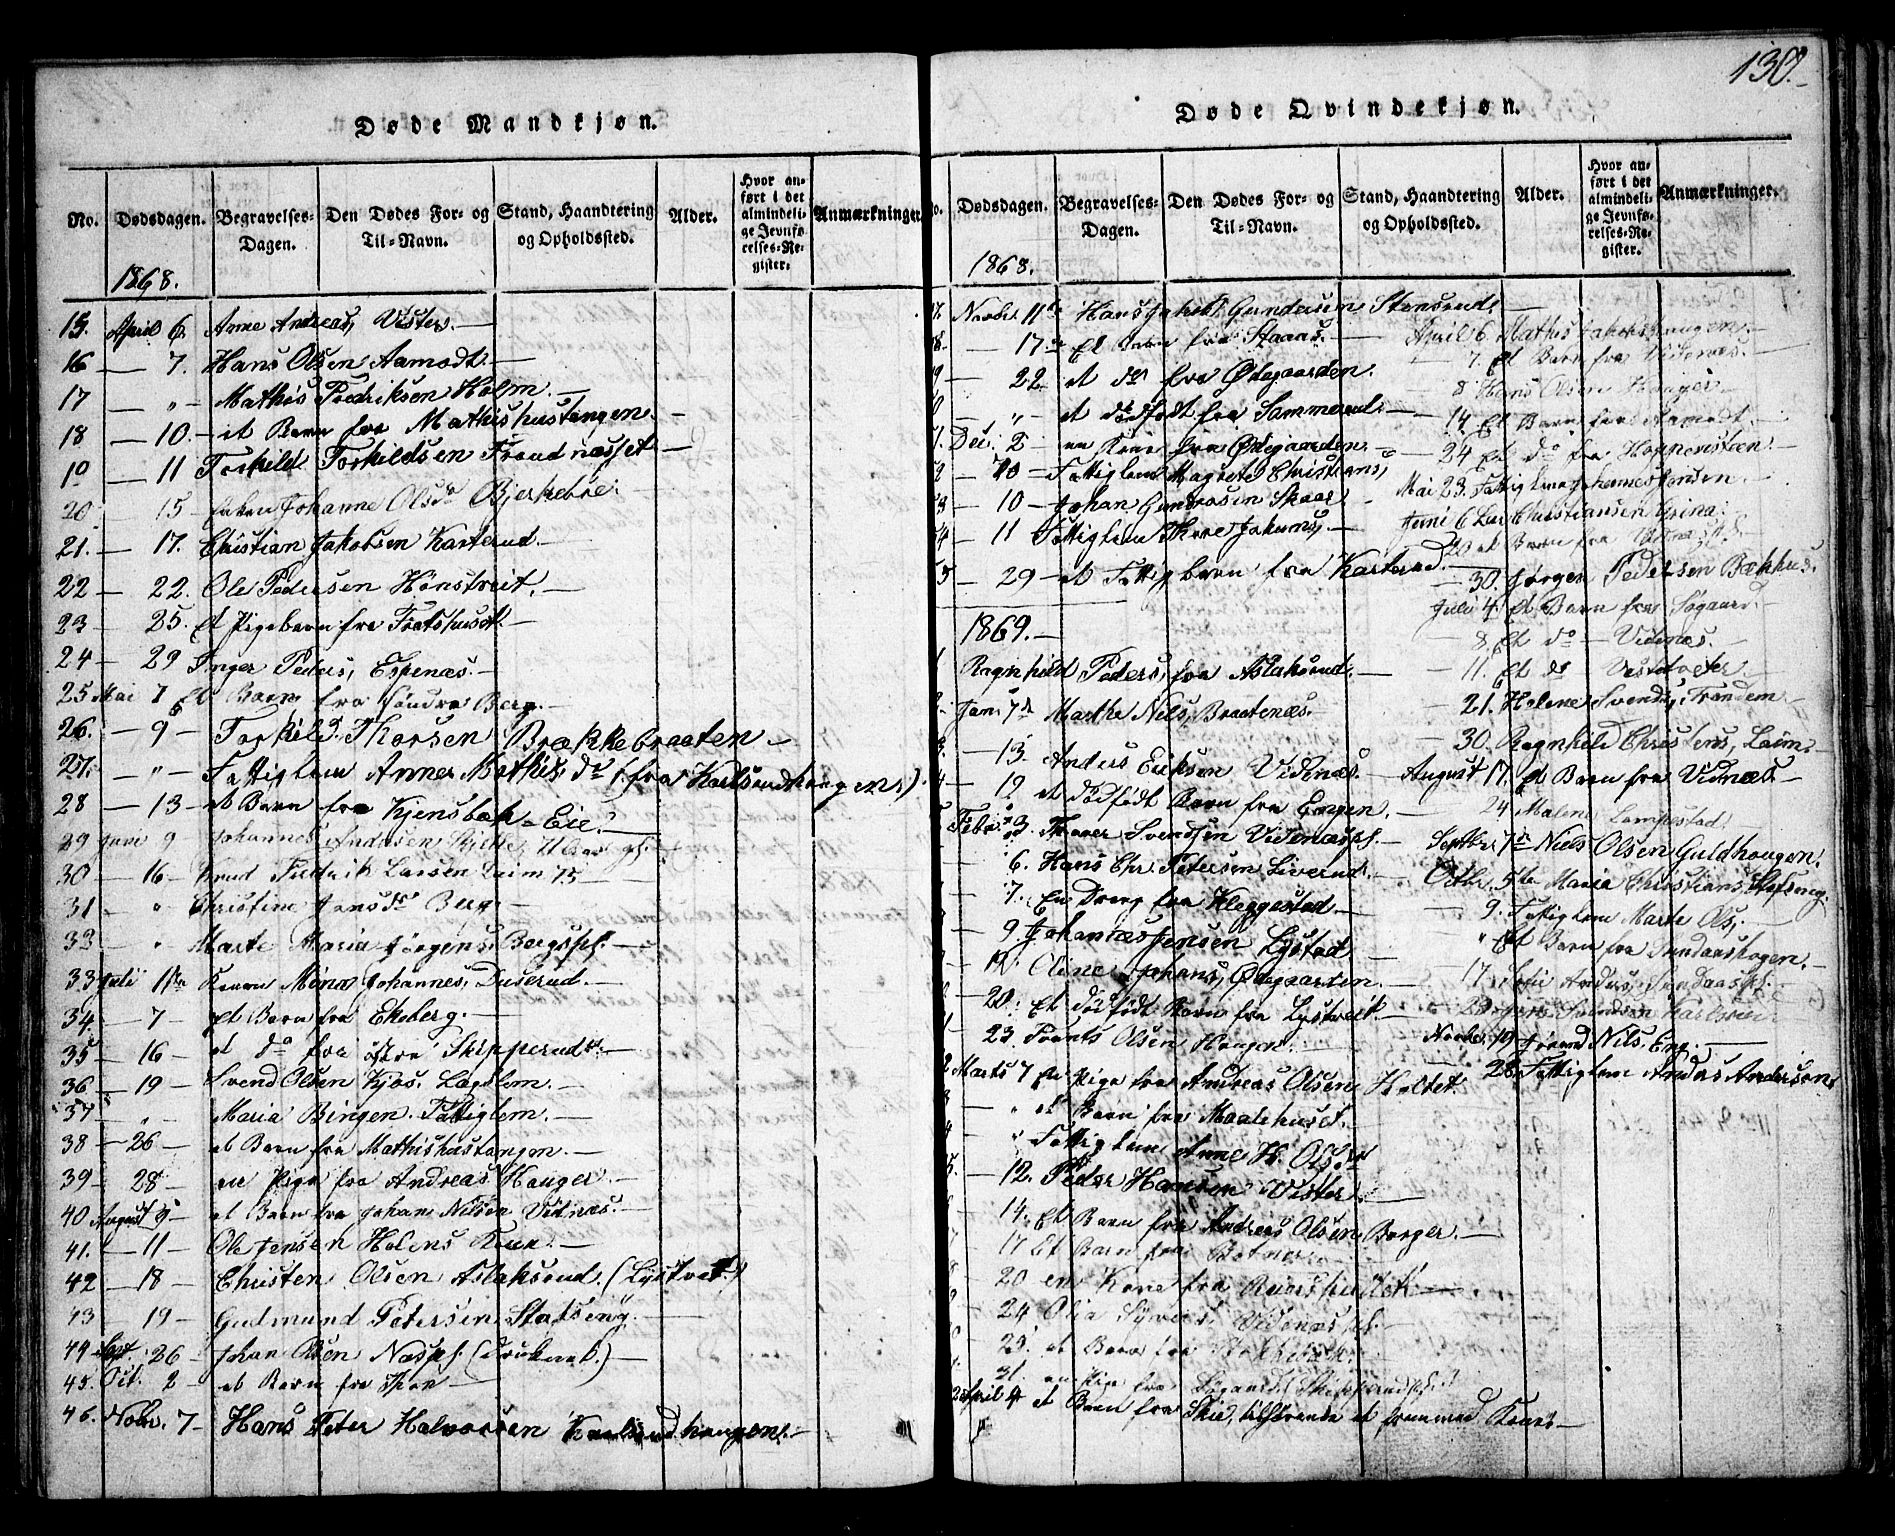 130.
Døde Mandkjøn.
No. Dødsdagen. Begravelses-Dagen. Den Dødes For- og Til-Navn. Stand, Haandtering og Opholdssted. Alder. Hvor anført i det almindelige Jevnførelses-Register. Anmærkninger.
1868.
15. April 6. Anne Andreas, Vister. —
16 — 7. Hans Olsen Aamodt. —
17 — „ — Mathis Fredriksen Holm. —
18 — 10. — et Barn fra Mathishustangen. —
19 — 11 Torkild Torkildsen Froudnæsset —
20 — 15 Enken Johanne Olsdr Bjerkebøe.
21. — 17. Christian Jakobsen Karterud. —
22 — 22. Ole Pedersen Hönstveit. —
23 — 25. et Pigebarn fra
24 — 29 Inger Peders, Espenæs. —
25 Mai 7 Et Barn fra Söndre Berg. —
26. — 9 — Torkild Thorsen Brækkebraaten —
27. — „ — Fattiglem Anne Mathisdr (fra Karlsrudhaugen.)
28 — 13 — et Barn fra Kjensbak-Eie. —
29 Juni 9 Johannes Andersen
30 — 16 — Knud Fredrik Larsen Leim 75 —
31 — „ Christine Jensdr Berg —
33 — „ Marte Maria Jörgens, Bergspl. —
33 Juli 1ste Karen Mina Johannes, Duserud. —
34. — 7 — et Barn fra Ekeberg. —
35 — 16 — et do fra östre Skipperud. —
36 — 19 — Svend Olsen Kjos. Lægdlem. —
37 — „ Maria Bingen. Fattiglem. —
38 — 26 — et Barn fra Mathishustangen. —
39 — 28 — en Pige fra Andreas Hauger. —
40 August 5 — et Barn fra Johan Nilsen Vidnæs. —
41. — 11 — Ole Jensen Holens —
42 — 18 — Christen Olsen Aslaksrud. (Lystvet.)
43 19 — Gudmund Petersen —
44 Sept. 26 — Johan Olsen Næspl. (druknet.) —
45. Oct. 2 — et Barn fra Thon —
46. Nobr. 7 — Hans Peter Halvorsen Karlsrudhaugen. —
Døde Qvindekjøn.
No. Dødsdagen. Begravelses-Dagen. Den Dødes For- og Til-Navn. Stand, Haandtering og Opholdssted. Alder. Hvor anført i det almindelige Jevnførelses-Register. Anmærkninger.
1868.
7. Novbr. 11te Hans Jakob Gundersen Stensrud. —
8. — 17de Et Barn fra Staaus. —
9 — 22. et do fra Ødegaarden.
0 — „ et dödfödt fra Sammerud. —
1. Dec. 2 en Kone fra Ødegaarden. —
2 — 10 — Fattiglem Magrete Christians,
3 — 10 — Johan Gundersen Skaar. —
4 — 11 Fattiglem Thore Jakims, —
5 — 29 — et Fattigbarn fra Karterud. —
1869. —
1 Ragnhild Peders, fra Aslaksrud. —
2. Jan. 7de Marthe Nils, Braatenæs. —
3. — 13. Anders Eriksen Vidnæs. —
4 — 19 et dödfödt Barn fra Engen. —
5 Febr. 3. Thorer Svendsen Vidnæspl. —
6. Hans Chr. Petersen Liverud. —
7. En Dreng fra Kleggestad —
9. Johannes Jensen Lystad
19. Oline Johans, Ødegaarden —
— 20. Et dödfödt Barn fra Lystveit. —
1 — 23. Frants Olsen Haugen. —
2 Marts 7 en Pige fra Andreas Olsen Holtet. —
3 — „ et Barn fra Maalehuset. —
4 „ Fattiglem Anne H. Olsdr
5. — 12. Peder Hansen Vister. —
— 14. Et Barn fra Andreas Olsen, Borger. —
— 17 Et Barn fra Botner. —
8 — 20 en Kone fra —
9 — 24. Olia Syvers, Vidnæspl. —
0 — 25. et Barn fra
— 31. en Pige fra Sögaard, Skipperudspl.
2 April 4 et Barn fra Skie, tilhörende et fremmed —
April 6. Mathis Jakobshaugen. —
— 7. Et Barn fra Vidnæs. —
— 8 Hans Olsen Hauger —
— 14. Et Barn fra Aamodt. —
— 24 Et do fra Hoppenstæn. —
Mai 23. Fattiglem Johannes Jensen. —
Juni 6 Christiansen Grina.
20 et Barn fra
— 30. Jörgen Pedersen Bækhus.
Juli 4. Et Barn fra Sögaard. —
— 8. Et do — Vidnæs —
— 11. Et do Vestvoter
— 21. Helene Svends, Trondem. —
— 30. Ragnhild Christens, Laim. —
August 17. Et Barn fra Vidnæs —
24 Malene Lampestad
Septbr. 7de Niels Olsen Guldhougen.
Octbr. 5te Maria Christians,
— 9. Fattiglem Marte Ols,
„ Et Barn fra Sundaashagen. —
— 17 Sofie Anders, Sundaaspl.
— Svendsen Karlsrud.
Novbr. 19 Nils, Eng. —
28. Fattiglem Anders Andersen,